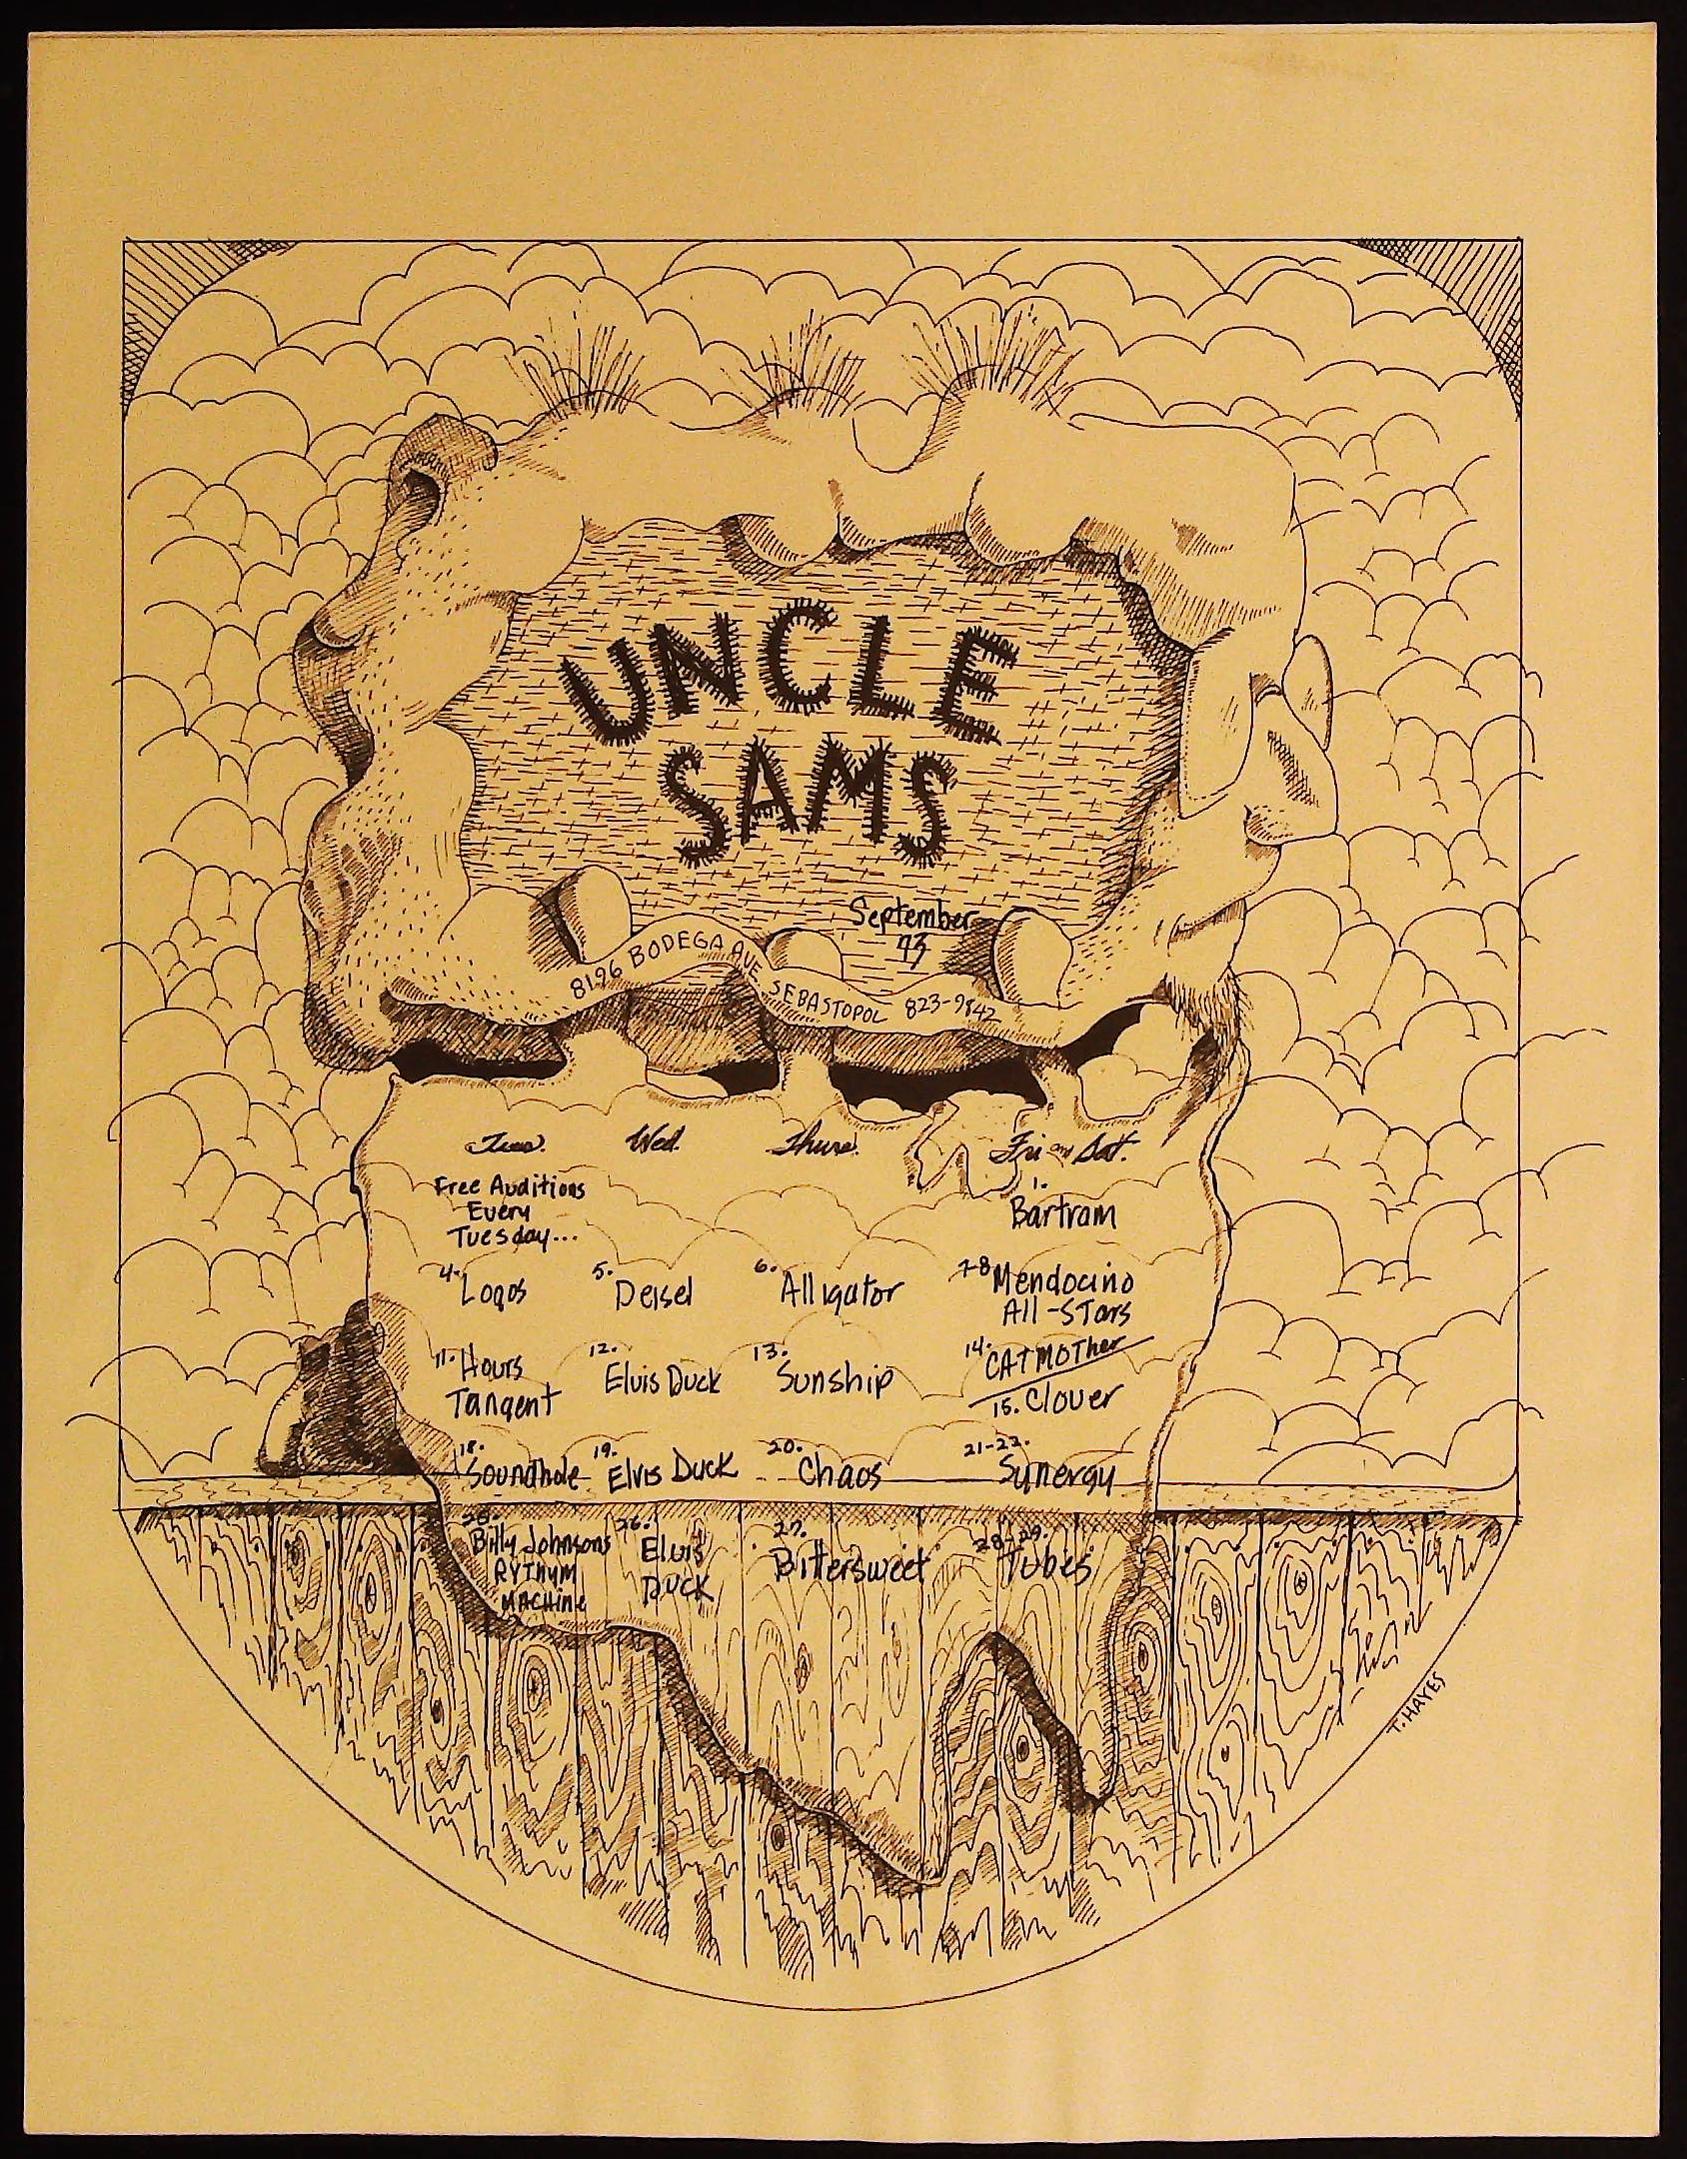 UNCLE
SAMS
September
73
8196 BODEGA AVE
SEBASTOPOL 823-9842
Tues. Wed. Thurs. Fri and Sat.
Free Auditions
Every
Tuesday...
1.
Bartram
4. Logos
5. Deisel
6. Alligator
7-8 Mendocino
All-STars
11. Hours
Tangent
12.
Elvis Duck
13.
Sunship
14. CATMOTher
15. Clover
18.
Soundhole
19.
Elvis Duck
20.
Chaos
21-22.
Synergy
25.
Billy Johnsons
RYThum
MACHine
26.
Elvis
DUCK
27.
Bittersweet
28-29.
Tubes
T. HAYES